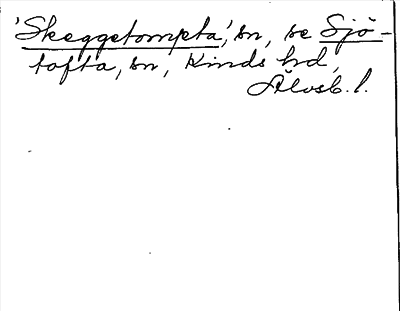 'Skeggetompta', sn, se Sjö-
tofta, sn, Kinds hd,
Älvsb. l.